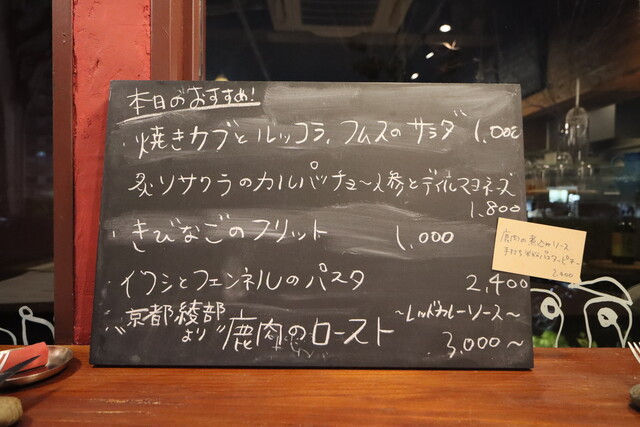 本日のおすすめ!
・焼きカブとルッコラ、フムスのサラダ 1,000
炙りサワラのカルパッチョ〜人参とディルマヨネーズ
1,800
・きびなごのフリット 1,000
・イワシとフェンネルのパスタ 2,400
京都綾部より 鹿肉のロースト 〜レッドカレーソース〜
3,000〜
鹿肉の煮込みソース
手打ち パスタ ピチ
2,400